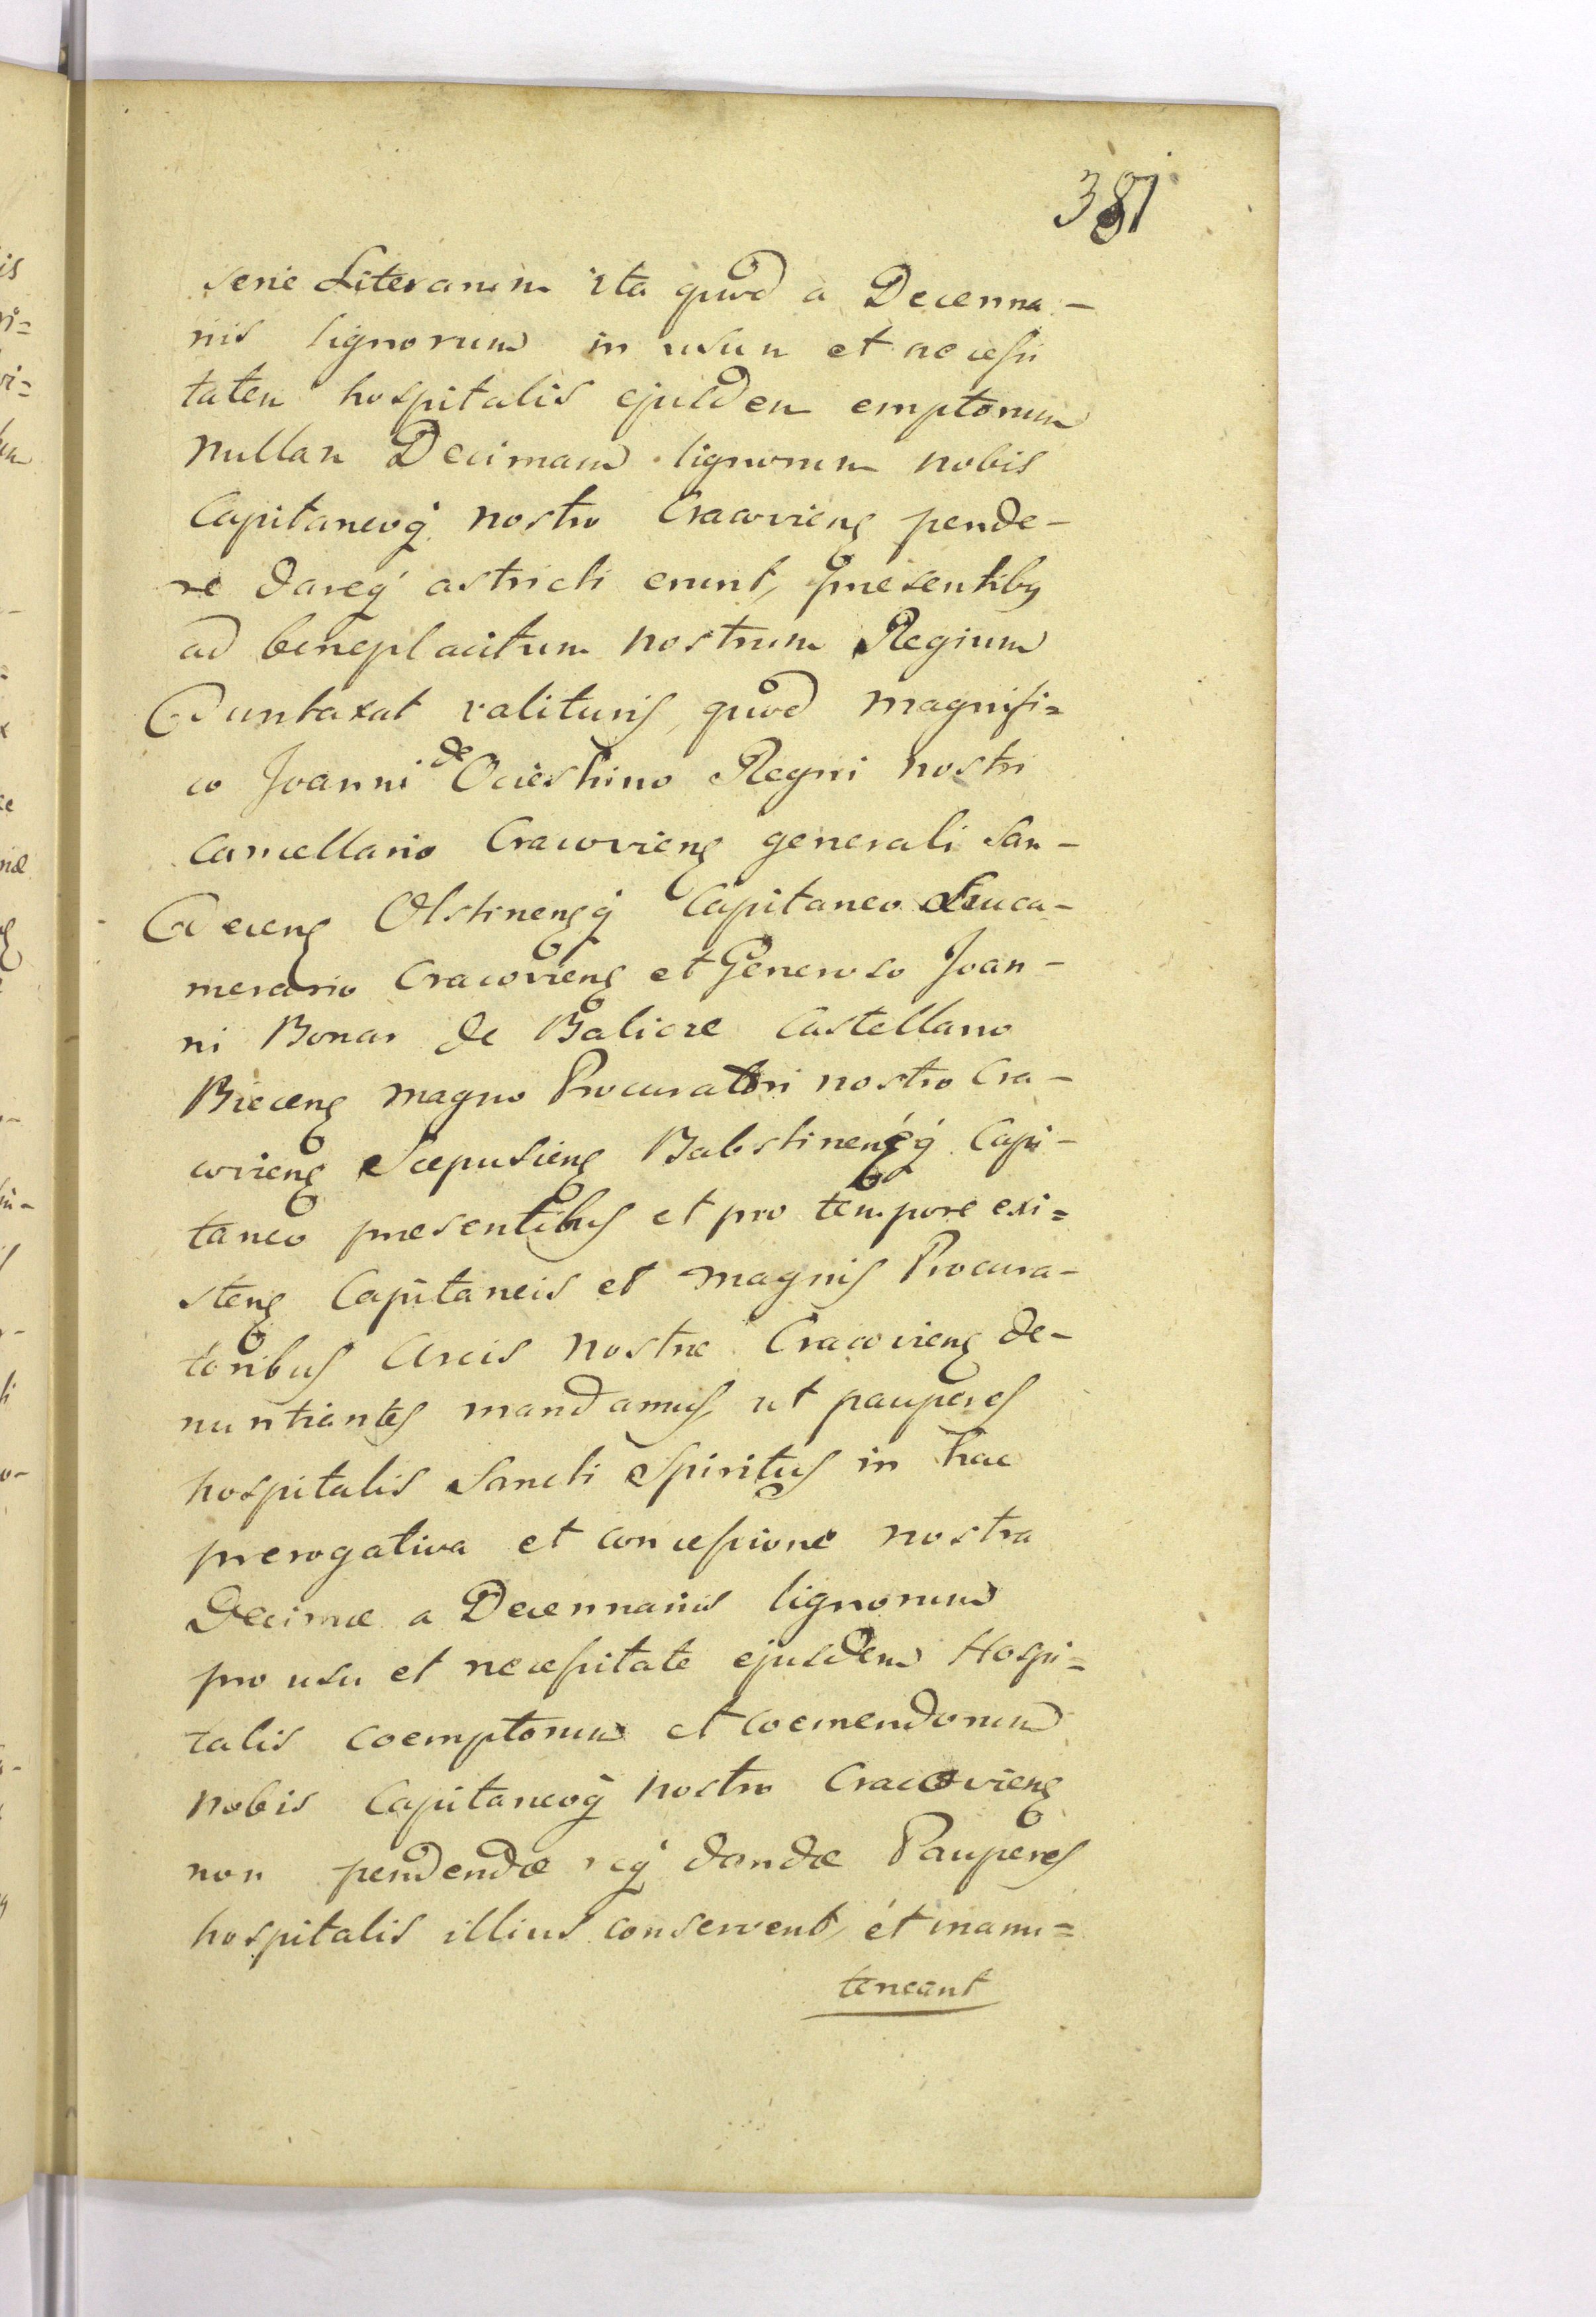 381
serie Literarum ita quod à Decenna-
riis lignorum in usum et necessi
tatem hospitalis ejusdem emptorum
nullam Decimam lignorum nobis
Capitaneoq nostro Cracovieng pende-
re dareq astricti erunt, presentibg
ad beneplacitum nostrum Regium
Duntaxat valituris, quod magnifi=
co Joanni de Ocieskino Regni nostri
Cancellario Cracovieng generali San-
Deceng Olstinengq Capitaneo Succa-
merario Cracovieng et Generoso Joan-
ni Bonar de Balicze Castellano
Bieceng magno Procuratori nostro Cra-
covieng Scepusieng Rabstinengq Capi-
taneo presentibus et pro tempore exi=
steng Capitaneis et magnis Procura-
toribus Arcis nostre Cracovieng de-
nuntiantes mandamus, ut pauperes
hospitalis Sancti Spiritus in hac
prerogativa et concessione nostra
Decimæ a Decennariis lignorum
pro usu et necessitate ejusdem Hospi=
talis coemptorum et coemendorum
nobis Capitaneoq nostro Cracovieng
non pendendæ neq dandæ Pauperes
hospitalis illius conservent, et manu=
teneant